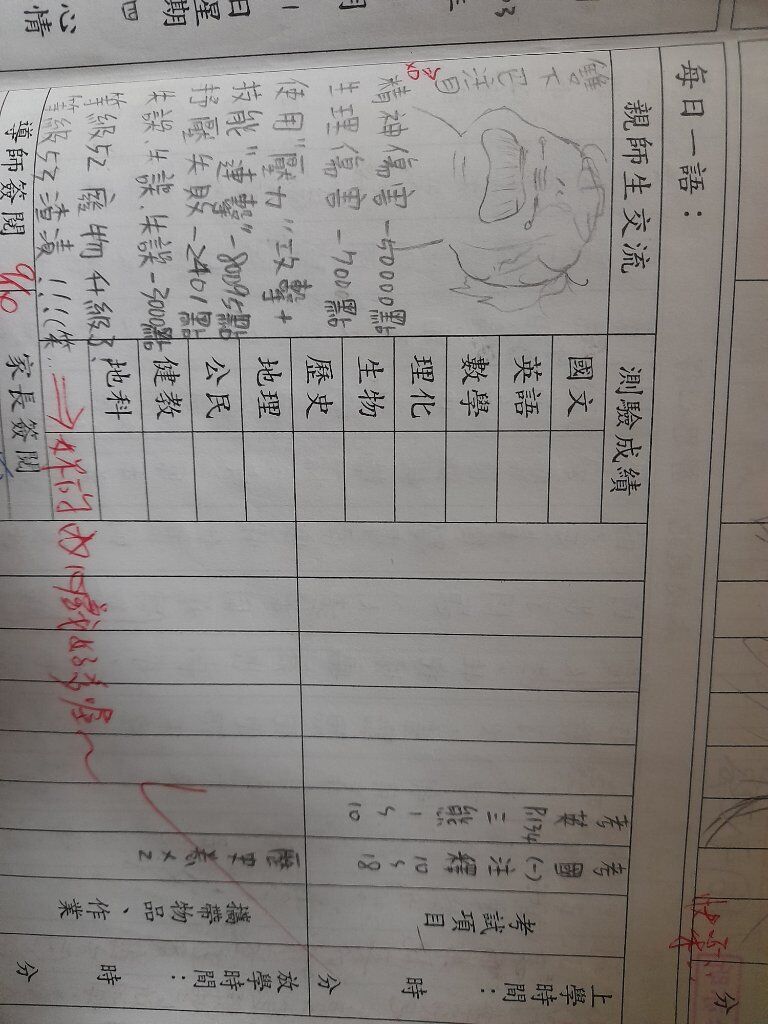 每日一語：
親師生交流
精神傷害 -50000點
生理傷害 -700點
使用"壓力"攻擊+
技能"連擊" -8009點
抒壓失敗 -2401點
失誤.失誤.失誤 -3000點
等級52 廢物 升級了
等級53 渣渣 !!!(笨...
導師簽閱
9/10
家長簽閱
測驗成績
國文
英語
數學
理化
生物
歷史
地理
公民
健教
地科
考試項目
考國(一)注釋
10 5 18
考英 P.134
三熊
1 5 10
攜帶物品、作業
歷史卷×2
上學時間：
時
分
放學時間：
時
分
心情
日星期四